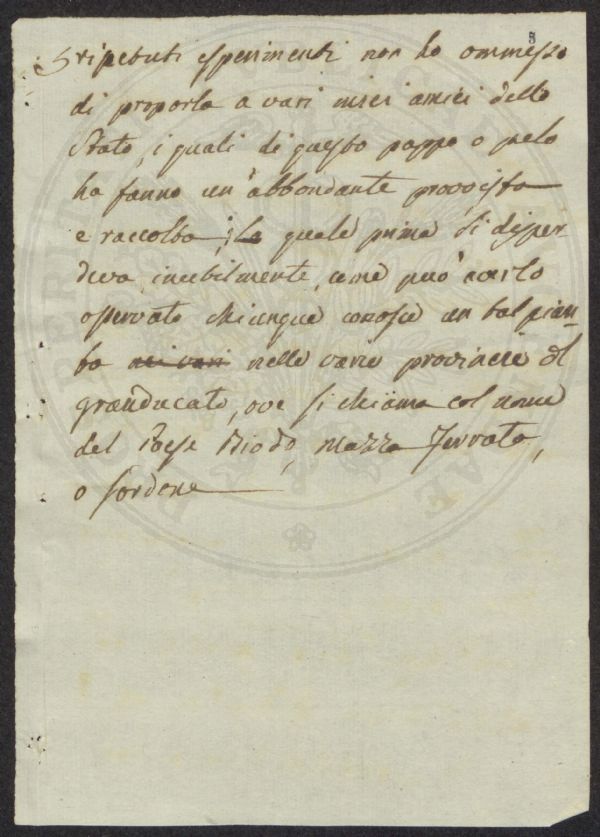 8
ripetuti esperimenti non ho ommesso
di proporla a vari miei amici dello
Stato, i quali di questo pappo o pelo
ha fanno un' abbondante provvista
e raccolta; la quale prima si disper
deva inutilmente, come può averlo
osservato chiunque conosce un tal pian-
ta nei vari nelle varie provincie del
granducato, ove si chiama col nome
del Paese Biodo, Mazza Ferrata,
o Sordone